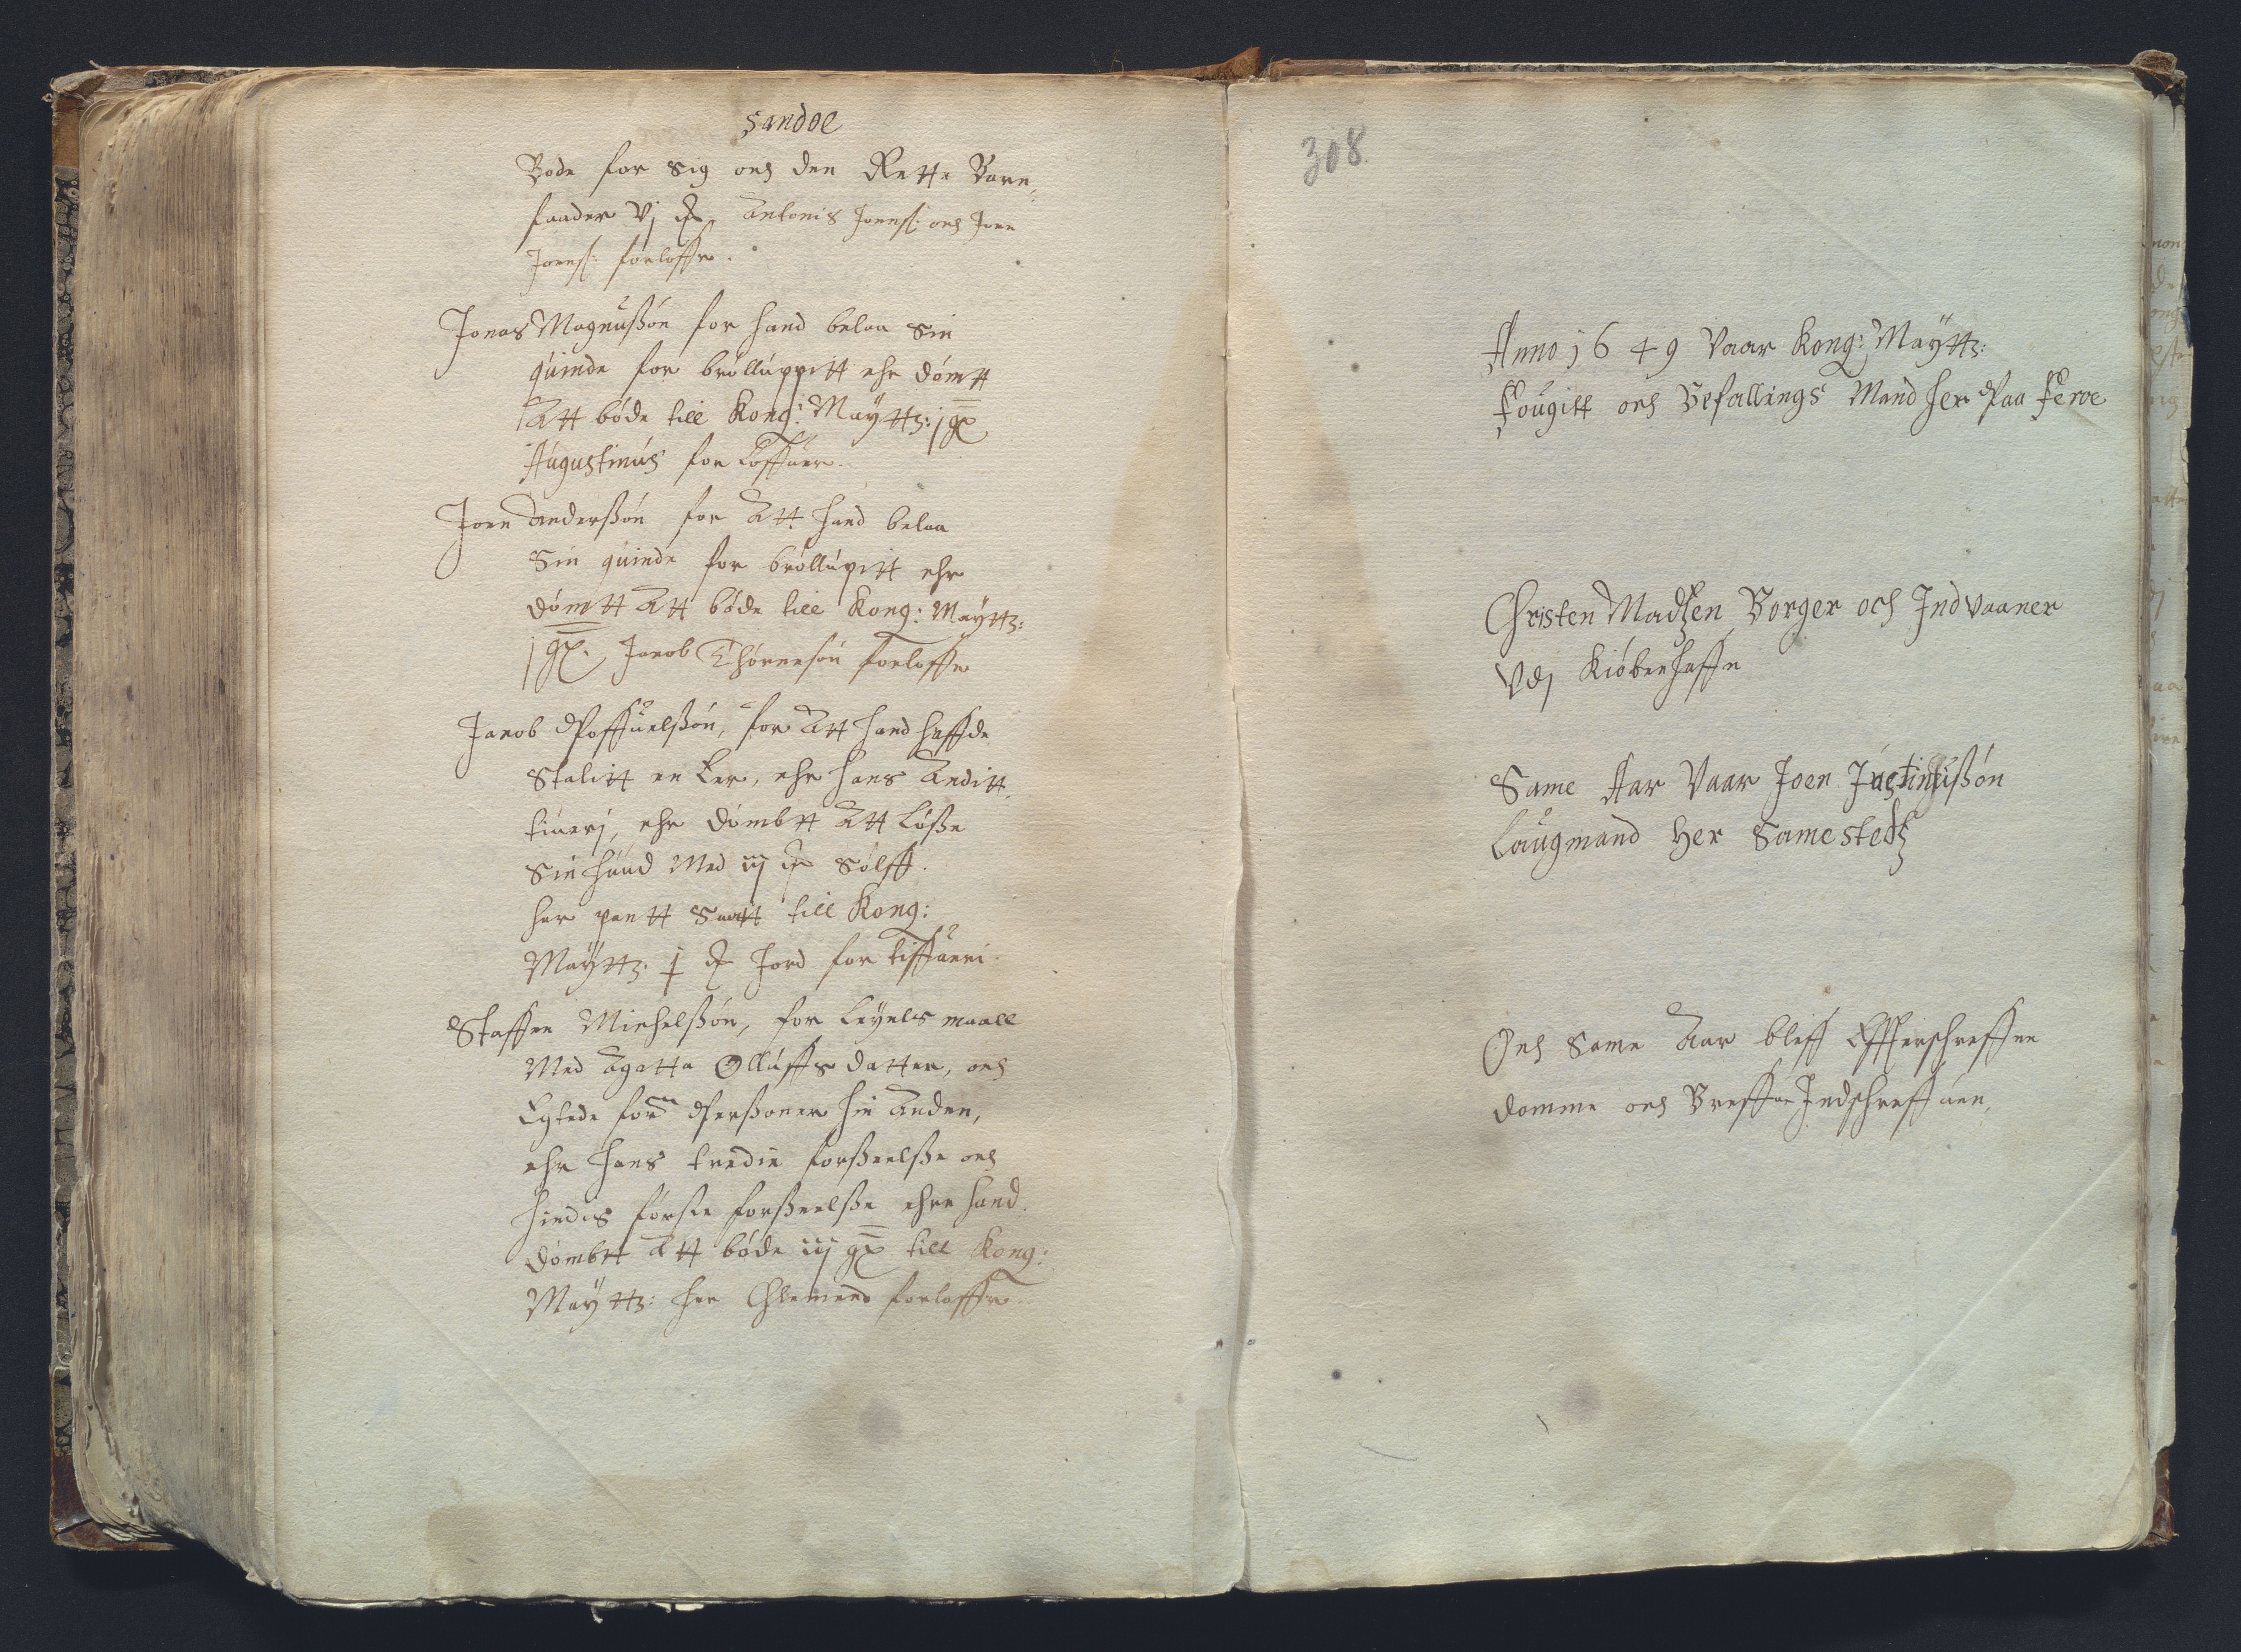 Sandoe
Bøde for sig och den Rette Barn,
faader vj 
Antonis Joens: och Joen
Joens: forloffer.
Jonas Magnußøn for hand belaa Sin
quinde for brølluppitt ehr dømtt
Att bøde till Kong: Maytts: j gl
Augustinus for Loffuer.
Joen Anderßøn for Att hand belaa
Sin quinde for brøllupitt ehr
dømtt Att bøde till Kong: Maytts:
j gl. Jacob Thørersøn forloffer
Jacob Poffuelßøn, for Att hand haffde
Stalitt en Ler, ehr hans Anditt
tiuerj, ehr dømbtt Att Løße
Sin Huud Med iij Sølff.
her pantt Saatt till Kong:
Maytts: j Jord for tiffueri.
Staffen Michelßøn, for Leyels maall
Med Agatta Olluffs datter, och
Egtede forne Perßoner hin Anden,
ehr hans tredie forßeelße och
hindis første forßeelße ehre hand
dømbtt Att bøde iij gl till Kong:
Maytts: her Clemend forloffer.
308
Anno 1649 Vaar Kong: Maytts:
Fougitt och Befallings Mand her Paa Feroe
Christen Madtzen Borger och Indvaaner
Vdj Kiøbenhaffn
Same Aar Vaar Joen Justinußøn
Laugmand Her Samestedtz
Och Same Aar bleff Effterschreffne
Domme och Breffue Indschreffuen,